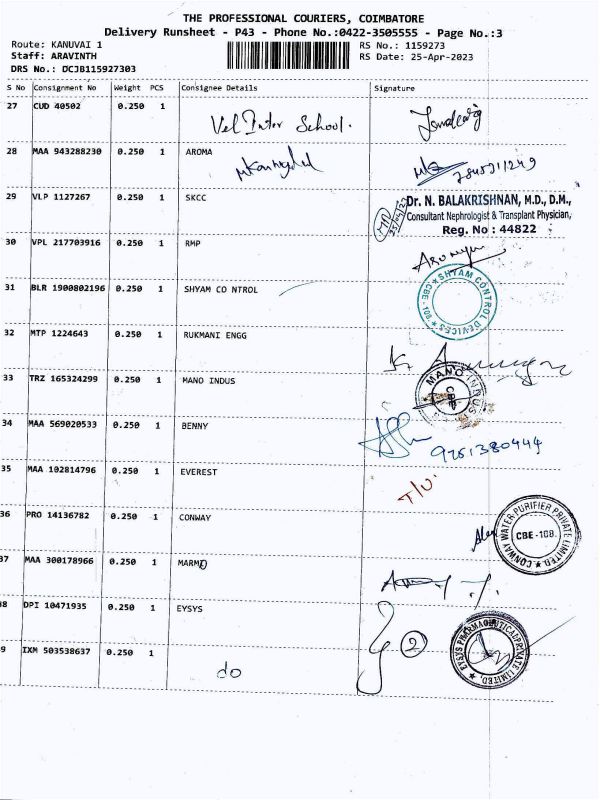 THE PROFESSIONAL COURIERS, COIMBATORE
Delivery Runsheet - P43 - Phone No.:0422-3505555 - Page No.:3
Route: KANUVAI 1 RS No.: 1159273
Staff: ARAVINTH RS Date: 25-Apr-2023
DRS No.: DCJB115927303
S No Consignment No Weight PCS Consignee Details Signature
27 CUD 40502 0.250 1 Vel Inter School.
28 MAA 943288230 0.250 1 AROMA
29 VLP 1127267 0.250 1 SKCC
Dr. N. BALAKRISHNAN, M.D., D.M.,
Consultant Nephrologist & Transplant Physician,
Reg. No : 44822
30 VPL 217703916 0.250 1 RMP
31 BLR 1900802196 0.250 1 SHYAM CO NTROL
SHYAM CONTROL DEVICES ★ CBE - 108 ★
32 MTP 1224643 0.250 1 RUKMANI ENGG
33 TRZ 165324299 0.250 1 MANO INDUS
MANO INDUS
34 MAA 569020533 0.250 1 BENNY
9751380444
35 MAA 102814796 0.250 1 EVEREST T/U.
36 PRO 14136782 0.250 1 CONWAY
CONWAY WATER PURIFIER PRIVATE LIMITED ★ CBE-108.
37 MAA 300178966 0.250 1 MARMO
38 DPI 10471935 0.250 1 EYSYS
EYSYS PHARMACEUTICAL PRIVATE LIMITED.
2
9 IXM 503538637 0.250 1 do